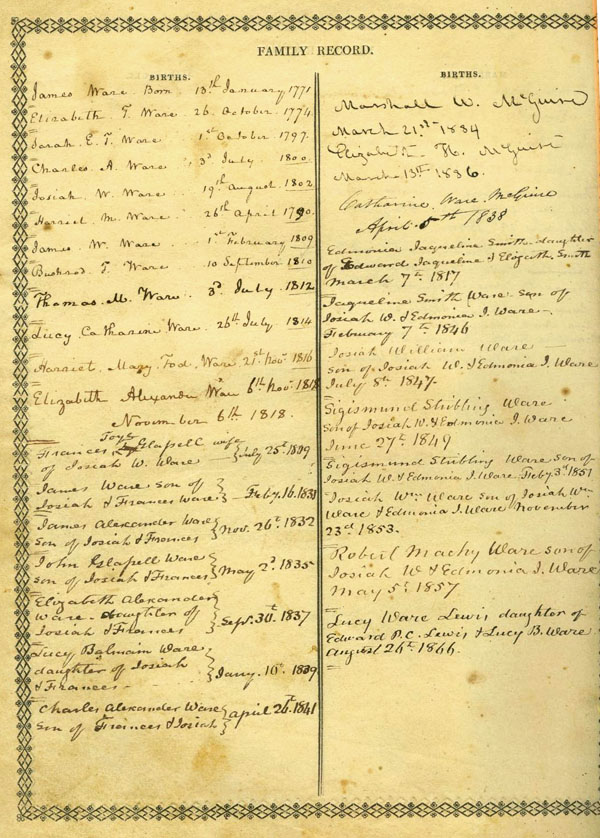 FAMILY RECORD.
BIRTHS.
James Ware Born 13th January 1771
Elizabeth T. Ware 26 October 1774
Sarah E. T. Ware 1st October 1797
Charles A. Ware 3d July 1800
Josiah W. Ware 19th August 1802
Harriet M. Ware 26th April
James W. Ware 1st February 1809
Bushrod T. Ware 10 September 1810
Thomas M. Ware 3d July 1812
Lucy Catharine Ware 26th July 1814
Harriet Mary Tod Ware 21st Nov. 1816
Elizabeth Alexander Ware 6th Nov. 1818
November 6th 1818.
Frances Toye Glapell wife
of Josiah W. Ware July 25th
James Ware son of
Josiah & Frances Ware Feby. 16.
James Alexander Ware
son of Josiah & Frances Nov. 26th 1832
John Glapell Ware
son of Josiah & Frances May 2d. 1835
Elizabeth Alexander
Ware daughter of
Josiah & Frances Sept. 30th. 1837
Lucy Balmain Ware
daughter of Josiah
& Frances Jany. 10th. 1839
Charles Alexander Ware
son of Frances & Josiah April 26th. 1841
BIRTHS.
Marshall W. McGuire
March 21st 1834
Elizabeth H. McGuire
March 13th 1836.
Catharine Ware McGuire
April 5th 1838
Edmonia Jaqueline Smith daughter
of Edward Jaqueline & Elizabeth Smith
March 7th 1817
Jaqueline Smith Ware son of
Josiah W. & Edmonia J. Ware
February 7th 1846
Josiah William Ware
son of Josiah W. & Edmonia J. Ware
July 8th 1847.
Sigismund Stribling Ware
Son of Josiah W. & Edmonia J. Ware
June 27th 1849
Sigismund Stribling Ware son of
Josiah W. & Edmonia J. Ware Feby. 3d 1851
Josiah Wm. Ware son of Josiah Wm.
Ware & Edmonia J. Ware November
23d 1853.
Robert Machy Ware son of
Josiah W & Edmonia J. Ware
May 5th 1857
Lucy Ware Lewis daughter of
Edward P.C. Lewis & Lucy B. Ware
August 26th 1866.